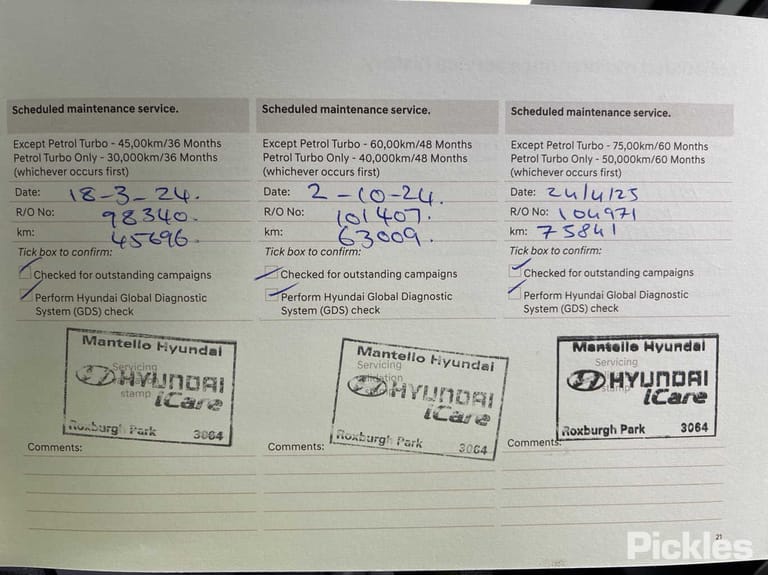 Scheduled maintenance service.
Except Petrol Turbo - 45,00km/36 Months
Petrol Turbo Only - 30,000km/36 Months
(whichever occurs first)
Date: 18-3-24.
R/O No: 98340.
km: 45696.
Tick box to confirm:
Checked for outstanding campaigns
Perform Hyundai Global Diagnostic
System (GDS) check
Mantello Hyundai
Servicing
HYUNDAI
stamp
iCare
Roxburgh Park 3064
Comments:
Scheduled maintenance service.
Except Petrol Turbo - 60,00km/48 Months
Petrol Turbo Only - 40,000km/48 Months
(whichever occurs first)
Date: 2-10-24.
R/O No: 101407.
km: 63009.
Tick box to confirm:
Checked for outstanding campaigns
Perform Hyundai Global Diagnostic
System (GDS) check
Mantello Hyundai
Servicing
HYUNDAI
iCare
Roxburgh Park 3064
Comments:
Scheduled maintenance service.
Except Petrol Turbo - 75,00km/60 Months
Petrol Turbo Only - 50,000km/60 Months
(whichever occurs first)
Date: 24/4/25
R/O No: 104971
km: 75841
Tick box to confirm:
Checked for outstanding campaigns
Perform Hyundai Global Diagnostic
System (GDS) check
Mantello Hyundai
Servicing
HYUNDAI
stamp
iCare
Roxburgh Park 3064
Comments:
21
Pickles